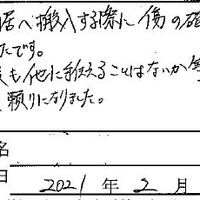 居へ搬入する際に傷の確
たです。
も他に教えることはないか等
頼りになりました。
名
日 2021 年 2 月